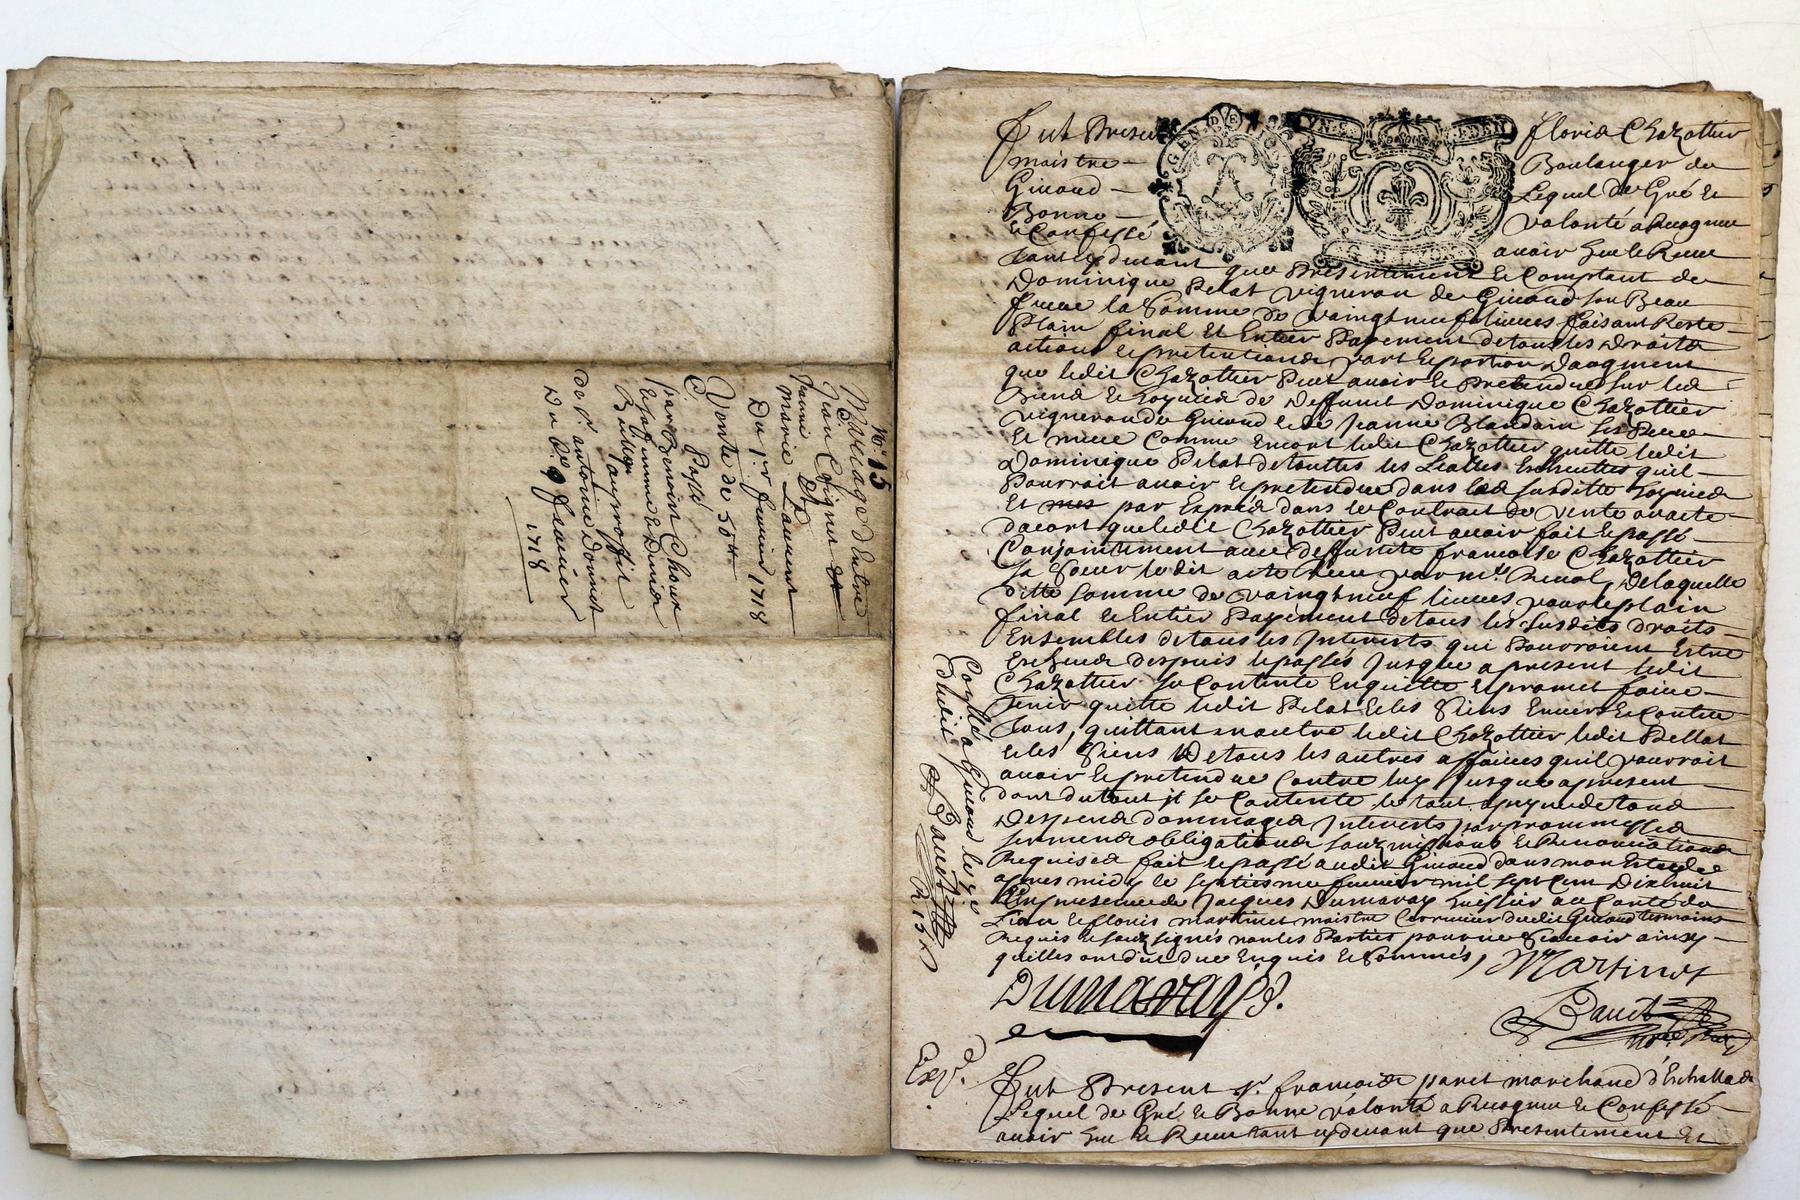 No. 15
Mariage d'entre
Jean Coignet et
Jeanne
Marie Laurent
Du 1er fevrier 1718
Vente de 50tt
Passé
par Benoist Choux
sa femme
de Sr. antoine Donnet
Du 9 feavier
1718
GEN DE LION
Fut Present floris Chazottier
maistre Boulanger de
Givord Lequel de Gré et
Bonne volonté a Recogneu
et Confessé avoir heu et Receu
tant cydevant que Presentement et Comptant de
Dominique Pelat vigneron de Givord son Beau
frere la Somme de vaingt neuf livres faisant Reste
Plain final et Entier Payement de tous les Droits
actions et pretentions part et portion daugment
que ledit Chazottier Peut avoir et Pretendre sur les
Biens et hoyries de Deffunit Dominique Chazottier
vigneron de Givord et de Jeanne Blandain ses Pere
Et mere Comme Encort ledit Chazottier quitte ledit
Dominique Pelat de touttes les quil
Pourroit avoir et pretendre dans les susditte hoyries
Et par Exprés dans le Contrait de vente ou acte
dacort que ledit Chazottier Peut avoir fait et passé
Conjointement avec deffunte francoise Chazottier
sa Soeur ledit acte Receu par me. Delaquelle
ditte Somme de vaingt neuf livres pour le plain
final et Entier Payement de tous les susdits droits
Ensembles de tous les Interests qui Pouvroient Estre
Escheus despuis le passés Jusque a present ledit
Chazottier se Contente Enquitte et promet faire
tenir quitte ledit Pelat et les Siens Envers et Contre
tous, quittant en outre ledit Chazottier ledit Pellat
et les Siens De tous les autres affaires quil pourroit
avoir et pretendre Contre luy Jusque a present
dont du tout il se Contente le tout a peyne de tous
Despens dommages Interests par prommesses
serments obligations soubmissions et Renonciations
Requises fait et passé audit Givord dans mon Estude
apres midy le septiesme fevrier mil sept Cent Dixhuit
En presence de Jacques Dumaray huissier au Conté de
Lion et Clouis martinet maistre Cordonier dudit Givord temoins
Requis et soubz signés non les Parties pour ne Scavoir ainsy
quilles ont dit de ce Enquis et Sommés,
Martinet
Dumarays.
Conllé a Givord le
dudit
R 13 s
Exp.
Fut Present Sr. francois paret marchand d'Eschallas
Lequel de Gré et Bonne volonté a Recogneu et Confessé
avoir heu et Receu tant cydevant que Presentement Et